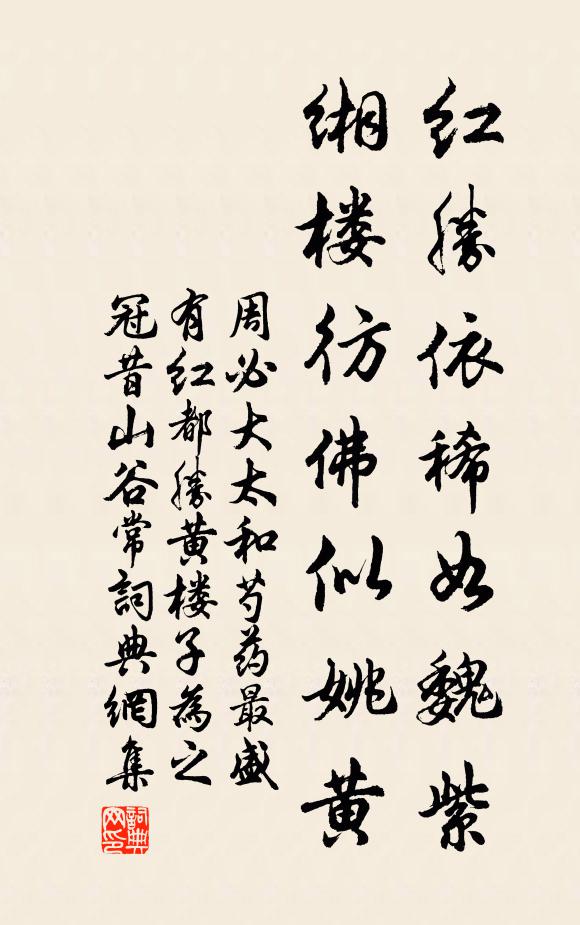 红勝依稀如魏紫
缃楼彷佛似姚黄
周必大太和芍药最盛
有红都勝黄楼子為之
冠昔山谷常詞典網集
詞典网印